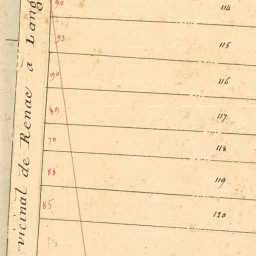 vicinal de Renac a Lang
90
114
93
115
90
116
117
70
118
88
119
85
120